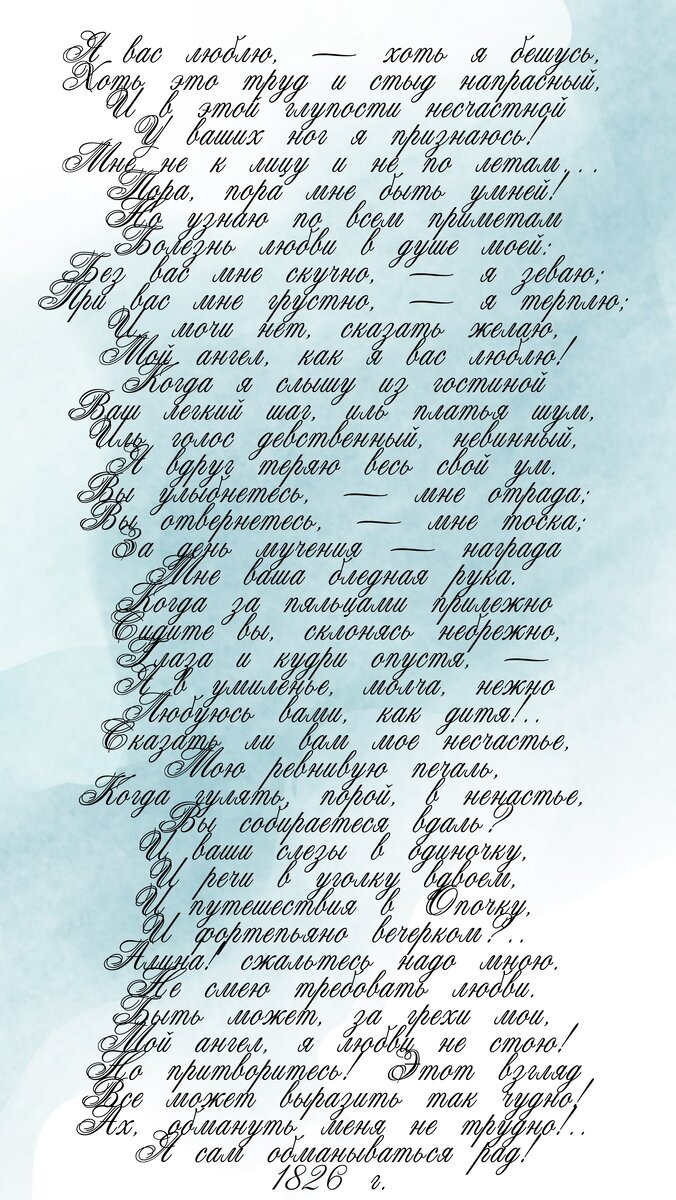 Я вас люблю, — хоть я бешусь,
Хоть это труд и стыд напрасный,
И в этой глупости несчастной
У ваших ног я признаюсь!
Мне не к лицу и не по летам...
Пора, пора мне быть умней!
Но узнаю по всем приметам
Болезнь любви в душе моей:
Без вас мне скучно, — я зеваю;
При вас мне грустно, — я терплю;
И мочи нет, сказать желаю,
Мой ангел, как я вас люблю!
Когда я слышу из гостиной
Ваш легкий шаг, иль платья шум,
Иль голос девственный, невинный,
Я вдруг теряю весь свой ум.
Вы улыбнетесь, — мне отрада;
Вы отвернетесь, — мне тоска;
За день мучения — награда
Мне ваша бледная рука.
Когда за пяльцами прилежно
Сидите вы, склонясь небрежно,
Глаза и кудри опустя, —
Я в умиленье, молча, нежно
Любуюсь вами, как дитя!..
Сказать ли вам мое несчастье,
Мою ревнивую печаль,
Когда гулять, порой, в ненастье,
Вы собираетеся вдаль?
И ваши слезы в одиночку,
И речи в уголку вдвоем,
И путешествия в Опочку,
И фортепьяно вечерком?..
Алина! сжальтесь надо мною.
Не смею требовать любви.
Быть может, за грехи мои,
Мой ангел, я любви не стою!
Но притворитесь! Этот взгляд
Все может выразить так чудно!
Ах, обмануть меня не трудно!..
Я сам обманываться рад!
1826 г.